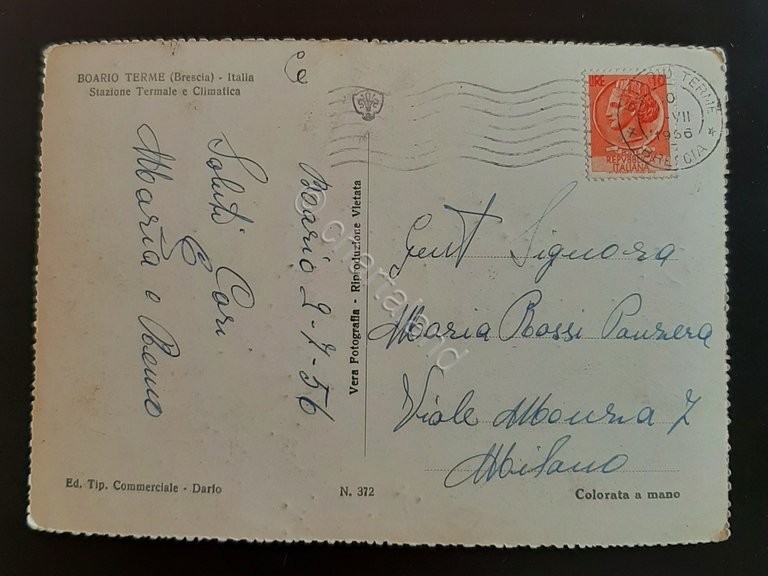 BOARIO TERME (Brescia) - Italia
Stazione Termale e Climatica
Boario 2-7-56
Saluti Cari
Maria e Remo
Vera Fotografia - Riproduzione Vietata
LIRE 10
REPVBBLICA
ITALIANA
TERME
VII
1956
BRESCIA
Gent Signora
Maria Rossi Panzera
Viale Monza 7
Milano
Ed. Tip. Commerciale - Darfo
N. 372
Colorata a mano
© chartaland